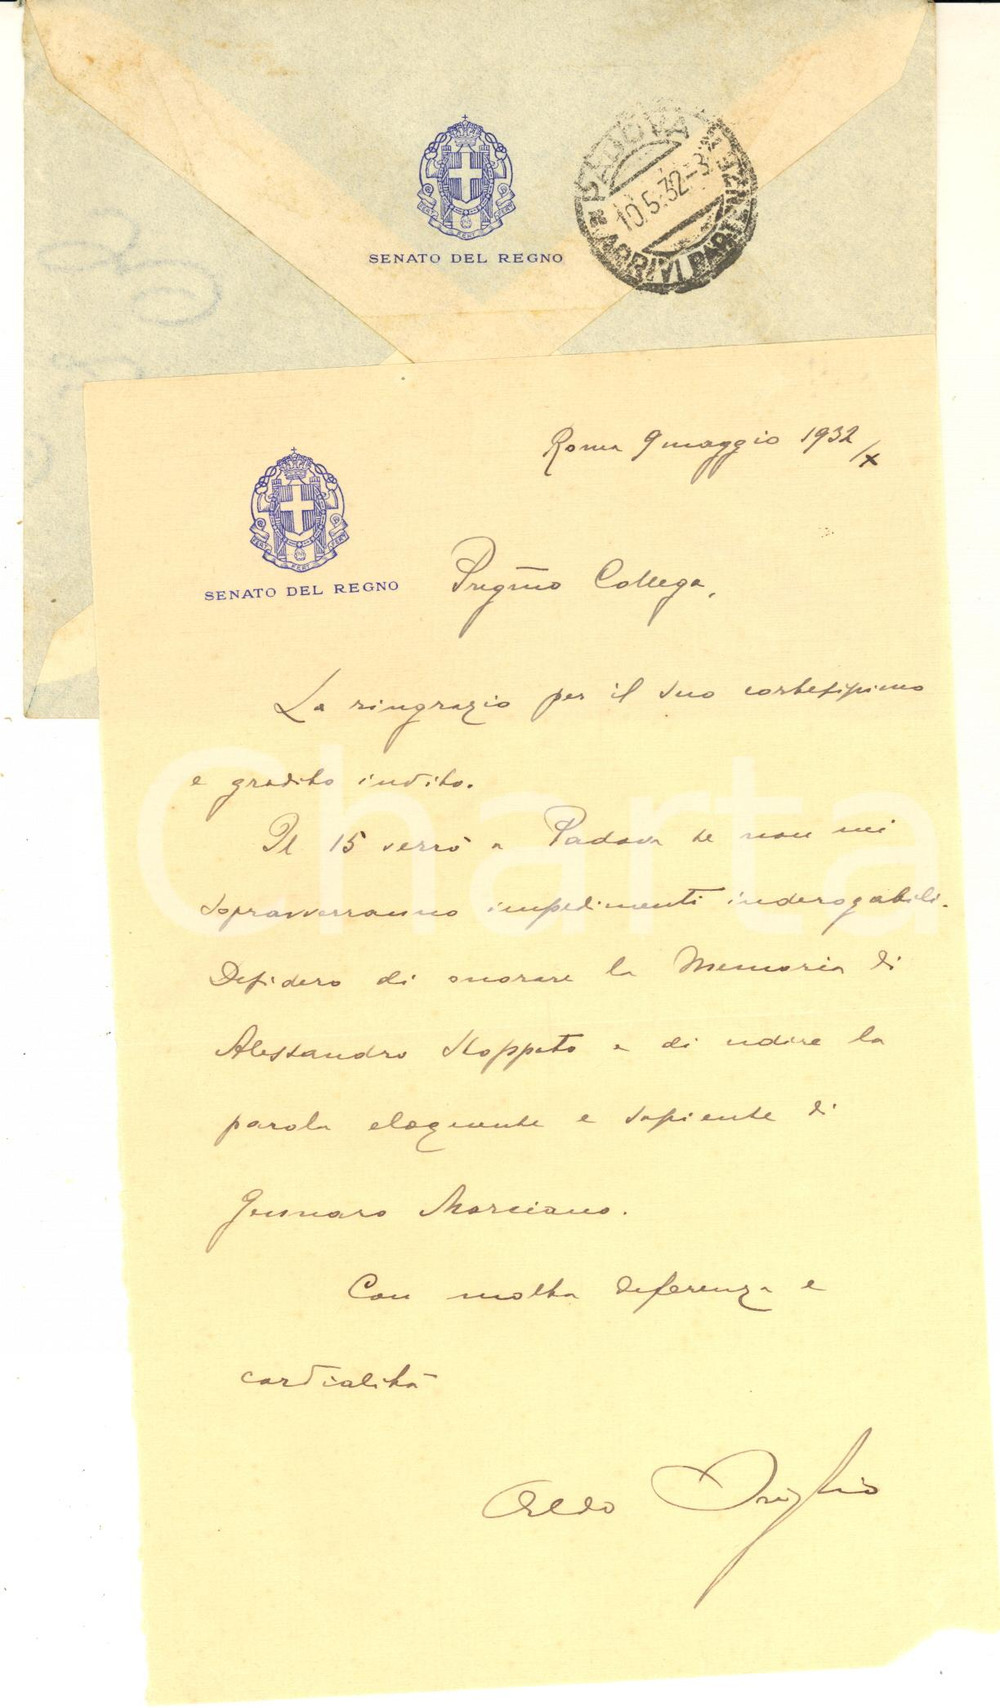 SENATO DEL REGNO
PADOVA
10.5.32
ARRIVI PARTENZE
Roma 9 maggio 1932/X
SENATO DEL REGNO
Preg͞mo Collega,
La ringrazio per il suo cortesissimo
e gradito invito.
Il 15 verrò a Padova se non mi
sopravverranno impedimenti inderogabili.
Desidero di onorare la Memoria di
Alessandro Stoppato e di udire la
parola eloquente e sapiente di
Gennaro Marciano.
Con molta deferenza e
cordialità
Aldo
Charta